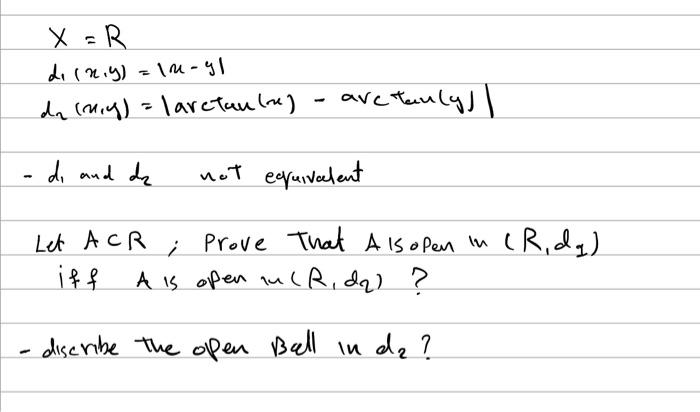 X = R
d₁(x,y) = |x - y|
d₂(x,y) = |arctan(x) - arctan(y)|
- d₁ and d₂ not equivalent
Let A ⊂ R ; Prove That A is open in (R, d₁)
iff A is open in (R, d₂) ?
- discribe the open Ball in d₂ ?